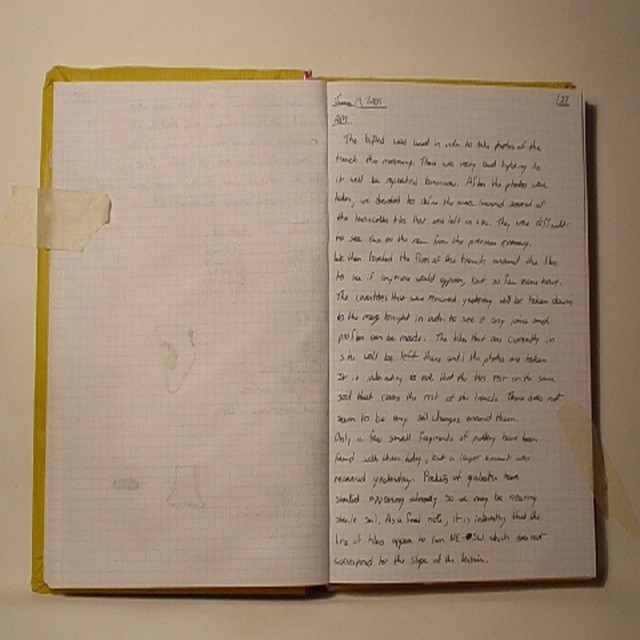 June 19, 2001
137
AM
The bipod was used in order to take photos of the
trench this morning. There was very bad lighting so
it will be repeated tomorrow. After the photos were
taken, we decided to define the area around several of
the terracotta tiles that are left in situ. They were difficult
to see due to the rain from the previous evening.
We then lowered the floor of the trench around the tiles
to see if any more would appear, but so far none have.
The covertiles that were removed yesterday will be taken down
to the mag tonight in order to see if any joins and
profiles can be made. The tiles that are currently in
situ will be left there until the photos are taken.
It is interesting to note that the tiles rest on the same
soil that covers the rest of the trench. There does not
seem to be any soil changes around them.
Only a few small fragments of pottery have been
found with them today, but a larger amount was
recovered yesterday. Pockets of galestra have
started appearing already so we may be nearing
sterile soil. As a final note, it is interesting that the
line of tiles appear to run NE-SW which does not
correspond to the slope of the terrain.